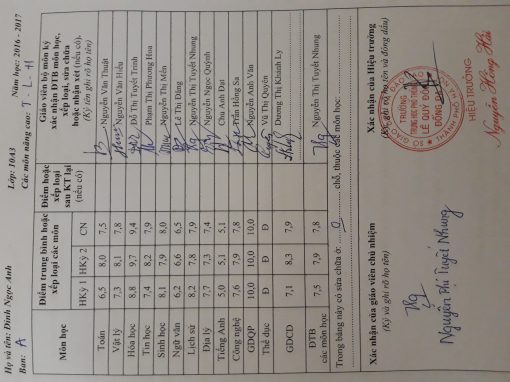 Họ và tên: Đinh Ngọc Anh Lớp: 10A3 Năm học: 2016 - 2017
Ban: A Các môn nâng cao: T - L - H
Môn học | Điểm trung bình hoặc xếp loại các môn | Điểm hoặc xếp loại sau KT lại (nếu có) | Giáo viên bộ môn ký xác nhận ĐTB môn học, xếp loại, sửa chữa hoặc nhận xét (nếu có), (Ký tên ghi rõ họ tên)
HKỳ 1 | HKỳ 2 | CN
Toán 6,5 8,0 7,5 Nguyễn Văn Thuật
Vật lý 7,3 8,1 7,8 Nguyễn Văn Hiếu
Hóa học 8,8 9,7 9,4 Đỗ Thị Tuyết Trinh
Tin học 7,4 8,2 7,9 Phạm Thị Phương Hoa
Sinh học 8,1 7,9 8,0 Nguyễn Thị Mến
Ngữ văn 6,2 6,6 6,5 Lê Thị Dâng
Lịch sử 8,2 7,8 7,9 Nguyễn Thị Tuyết Nhung
Địa lý 7,7 7,3 7,4 Nguyễn Ngọc Quỳnh
Tiếng Anh 5,0 5,1 5,1 Chu Anh Đạt
Công nghệ 7,6 7,9 7,8 Trần Hồng Sa
GDQP 10,0 10,0 10,0 Nguyễn Anh Văn
Thể dục Đ Đ Đ Vũ Thị Quyên
GDCD 7,1 8,3 7,9 Dương Thị Khánh Ly
ĐTB các môn học 7,5 7,9 7,8 Nguyễn Thị Tuyết Nhung
Trong bảng này có sửa chữa ở: 0 chỗ, thuộc các môn học:
Xác nhận của giáo viên chủ nhiệm
(Ký và ghi rõ họ tên)
Nguyễn Thị Tuyết Nhung
Xác nhận của Hiệu trưởng
(Ký, ghi rõ họ tên và đóng dấu)
TRƯỜNG
TRUNG HỌC PHỔ THÔNG
LÊ QUÝ ĐÔN
ĐỐNG ĐA
HIỆU TRƯỞNG